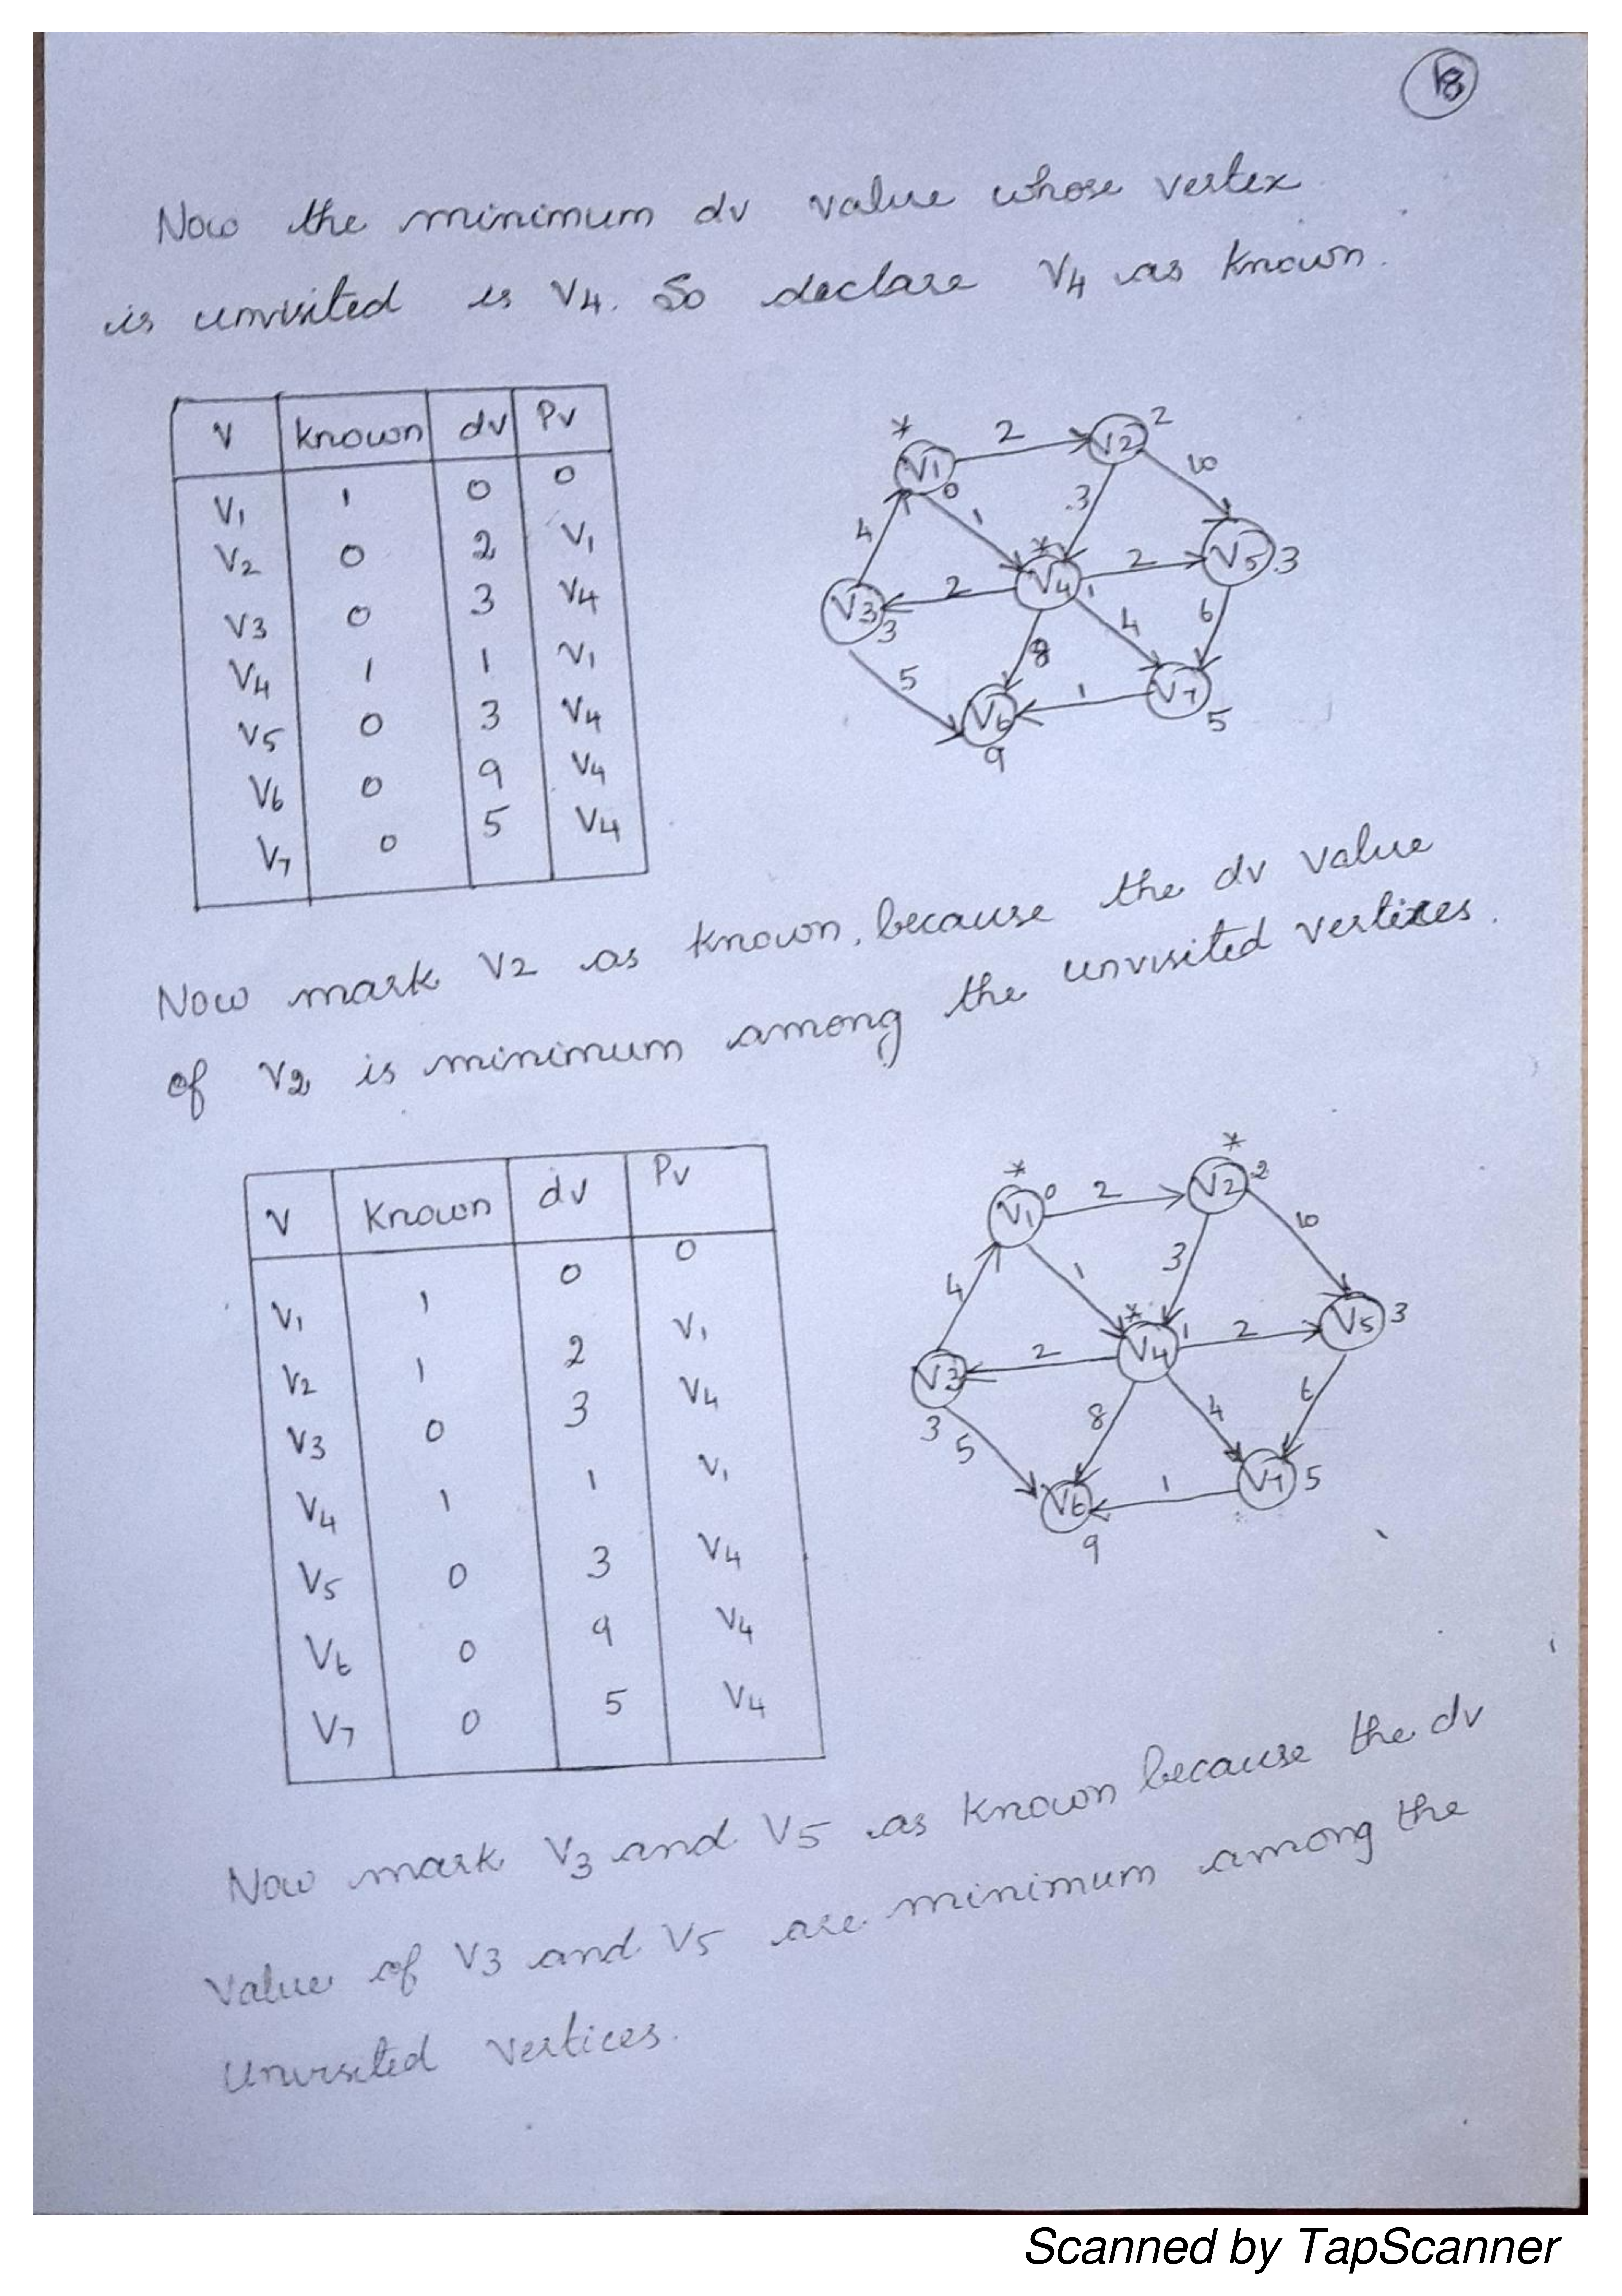 18
Now the minimum dv value whose vertex
is unvisited is V4. So declare V4 as known.
V known dv Pv
V1 1 0 0
V2 0 2 V1
V3 0 3 V4
V4 1 1 V1
V5 0 3 V4
V6 0 9 V4
V7 0 5 V4
* V1 0 2 V2 2
4 1 3 10
V3 3 2 * V4 1 2 V5 3
5 8 4 6
V6 9 1 V7 5
Now mark V2 as known, because the dv value
of V2 is minimum among the unvisited vertices.
V Known dv Pv
V1 1 0 0
V2 1 2 V1
V3 0 3 V4
V4 1 1 V1
V5 0 3 V4
V6 0 9 V4
V7 0 5 V4
* V1 0 2 * V2 2
4 1 3 10
V3 3 2 * V4 1 2 V5 3
5 8 4 6
V6 9 1 V7 5
Now mark V3 and V5 as known because the dv
value of V3 and V5 are minimum among the
unvisited vertices.
Scanned by TapScanner